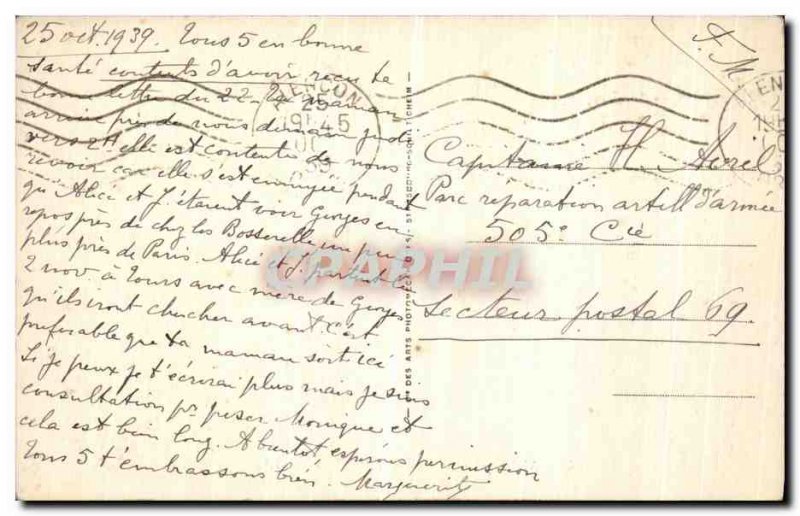 25 oct. 1939. Tous 5 en bonne
santé contents d'avoir reçu ta
bonne lettre du 22. Ta maman
arrive près de nous demain jeudi
vers 2H elle est contente de nous
revoir car elle s'est ennuyée pendant
qu'Alice et J. étaient voir Georges en
repos près de chez les Bosserelle un peu
plus près de Paris. Alice et J. partent le
2 nov. à Tours avec mère de Georges
qu'ils iront chercher avant. C'est
préférable que ta maman soit ici
Si je peux je t'écrirai plus mais je suis
consultation pr peser Monique et
cela est bien long. A bientôt espérons permission
Tous 5 t'embrassons bien. Marguerite
F. M
Capitaine H. Avril
Parc réparation artill d'armée
505e Cie
Secteur postal 69.
ENCON
25
1945
DES ARTS PHOTOMECANIQUES
CPAPHIL